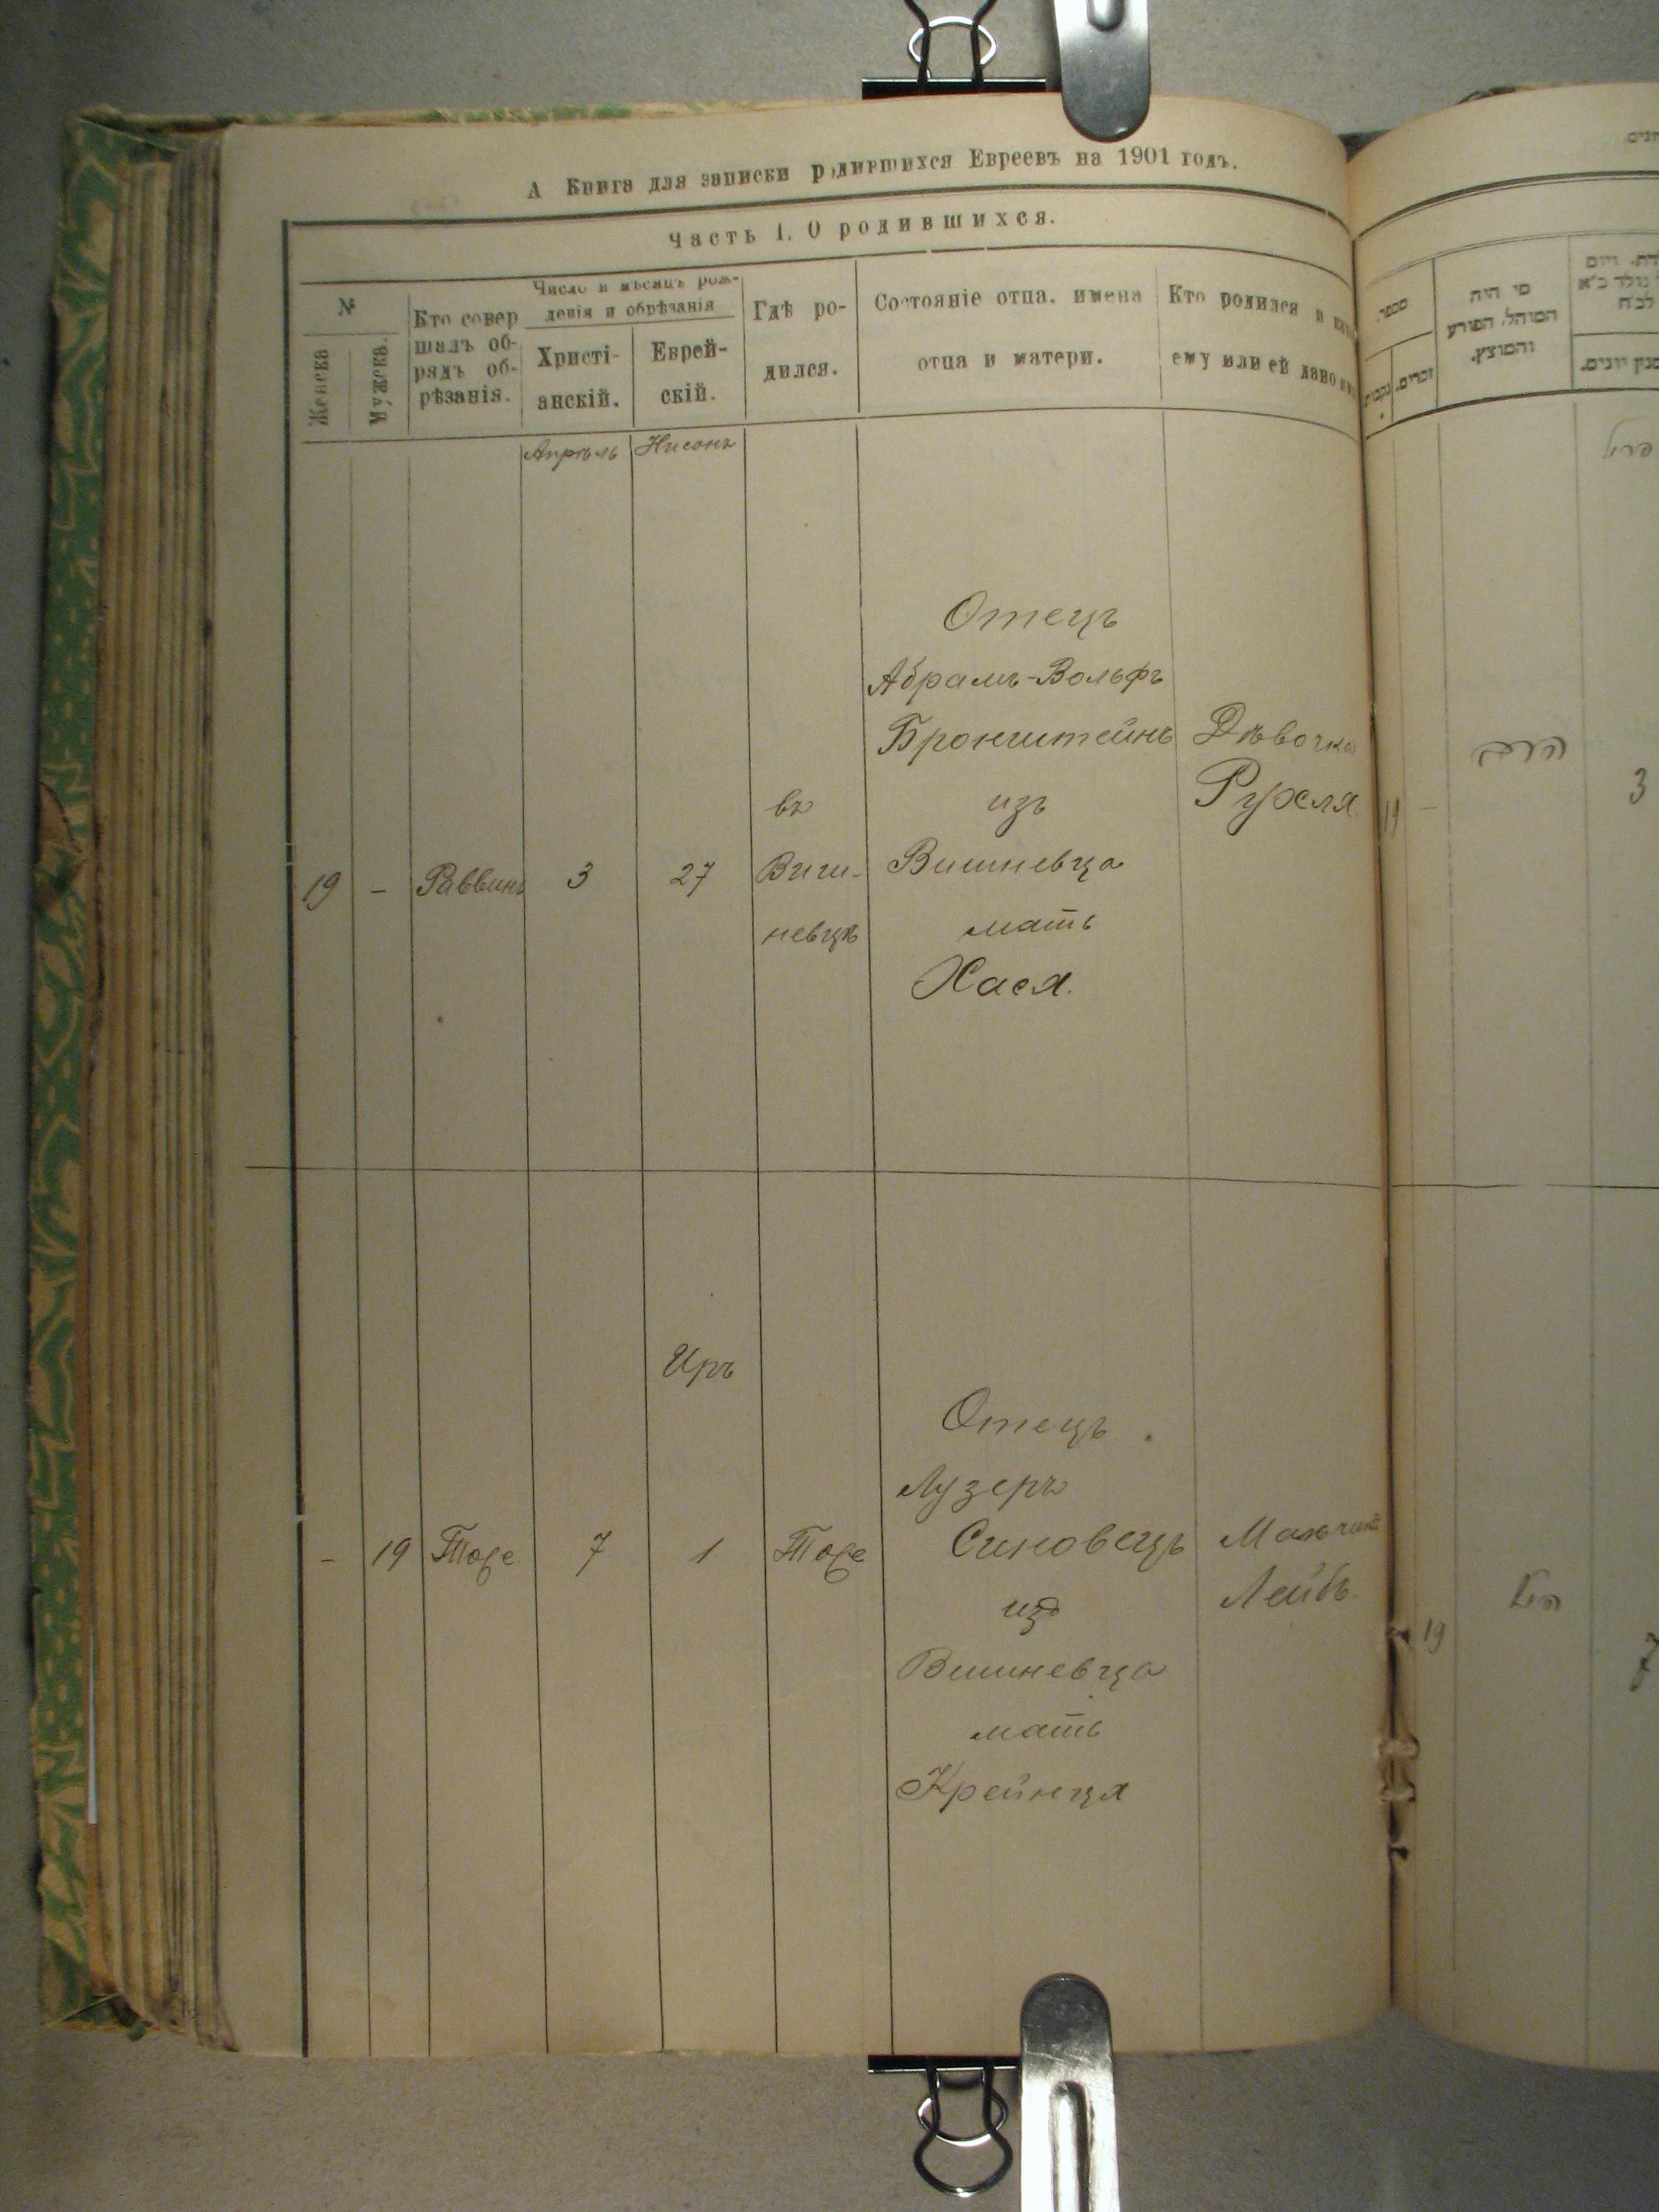 А Книга для записки родившихся Евреевъ на 1901 годъ.
Часть I. О родившихся.
№
Женска
Мужска.
Кто совер
шалъ об-
рядъ об-
рѣзанія.
Число и мѣсяцъ рож-
денія и обрѣзанія
Христі-
анскій.
Еврей-
скій.
Гдѣ ро-
дился.
Состояніе отца, имена
отца и матери.
Кто родился и
ему или ей дано
Апрѣль
Нисонъ
19
-
Раввинъ
3
27
въ
Виш-
невцѣ
Отецъ
Абрамъ-Вольфъ
Бронштейнъ
изъ
Вишневца
мать
Хася.
Дѣвочка
Рухля.
Иръ
-
19
Тоже
7
1
Тоже
Отецъ
Лузеръ
Синовецъ
изъ
Вишневца
мать
Крейнця
Мальчикъ
Лейбъ.
מספר
נקבות
זכרים.
מי היה
המוהל, הפורע
והמוצץ.
19
-
הרב
3
19
הנ״ל
7